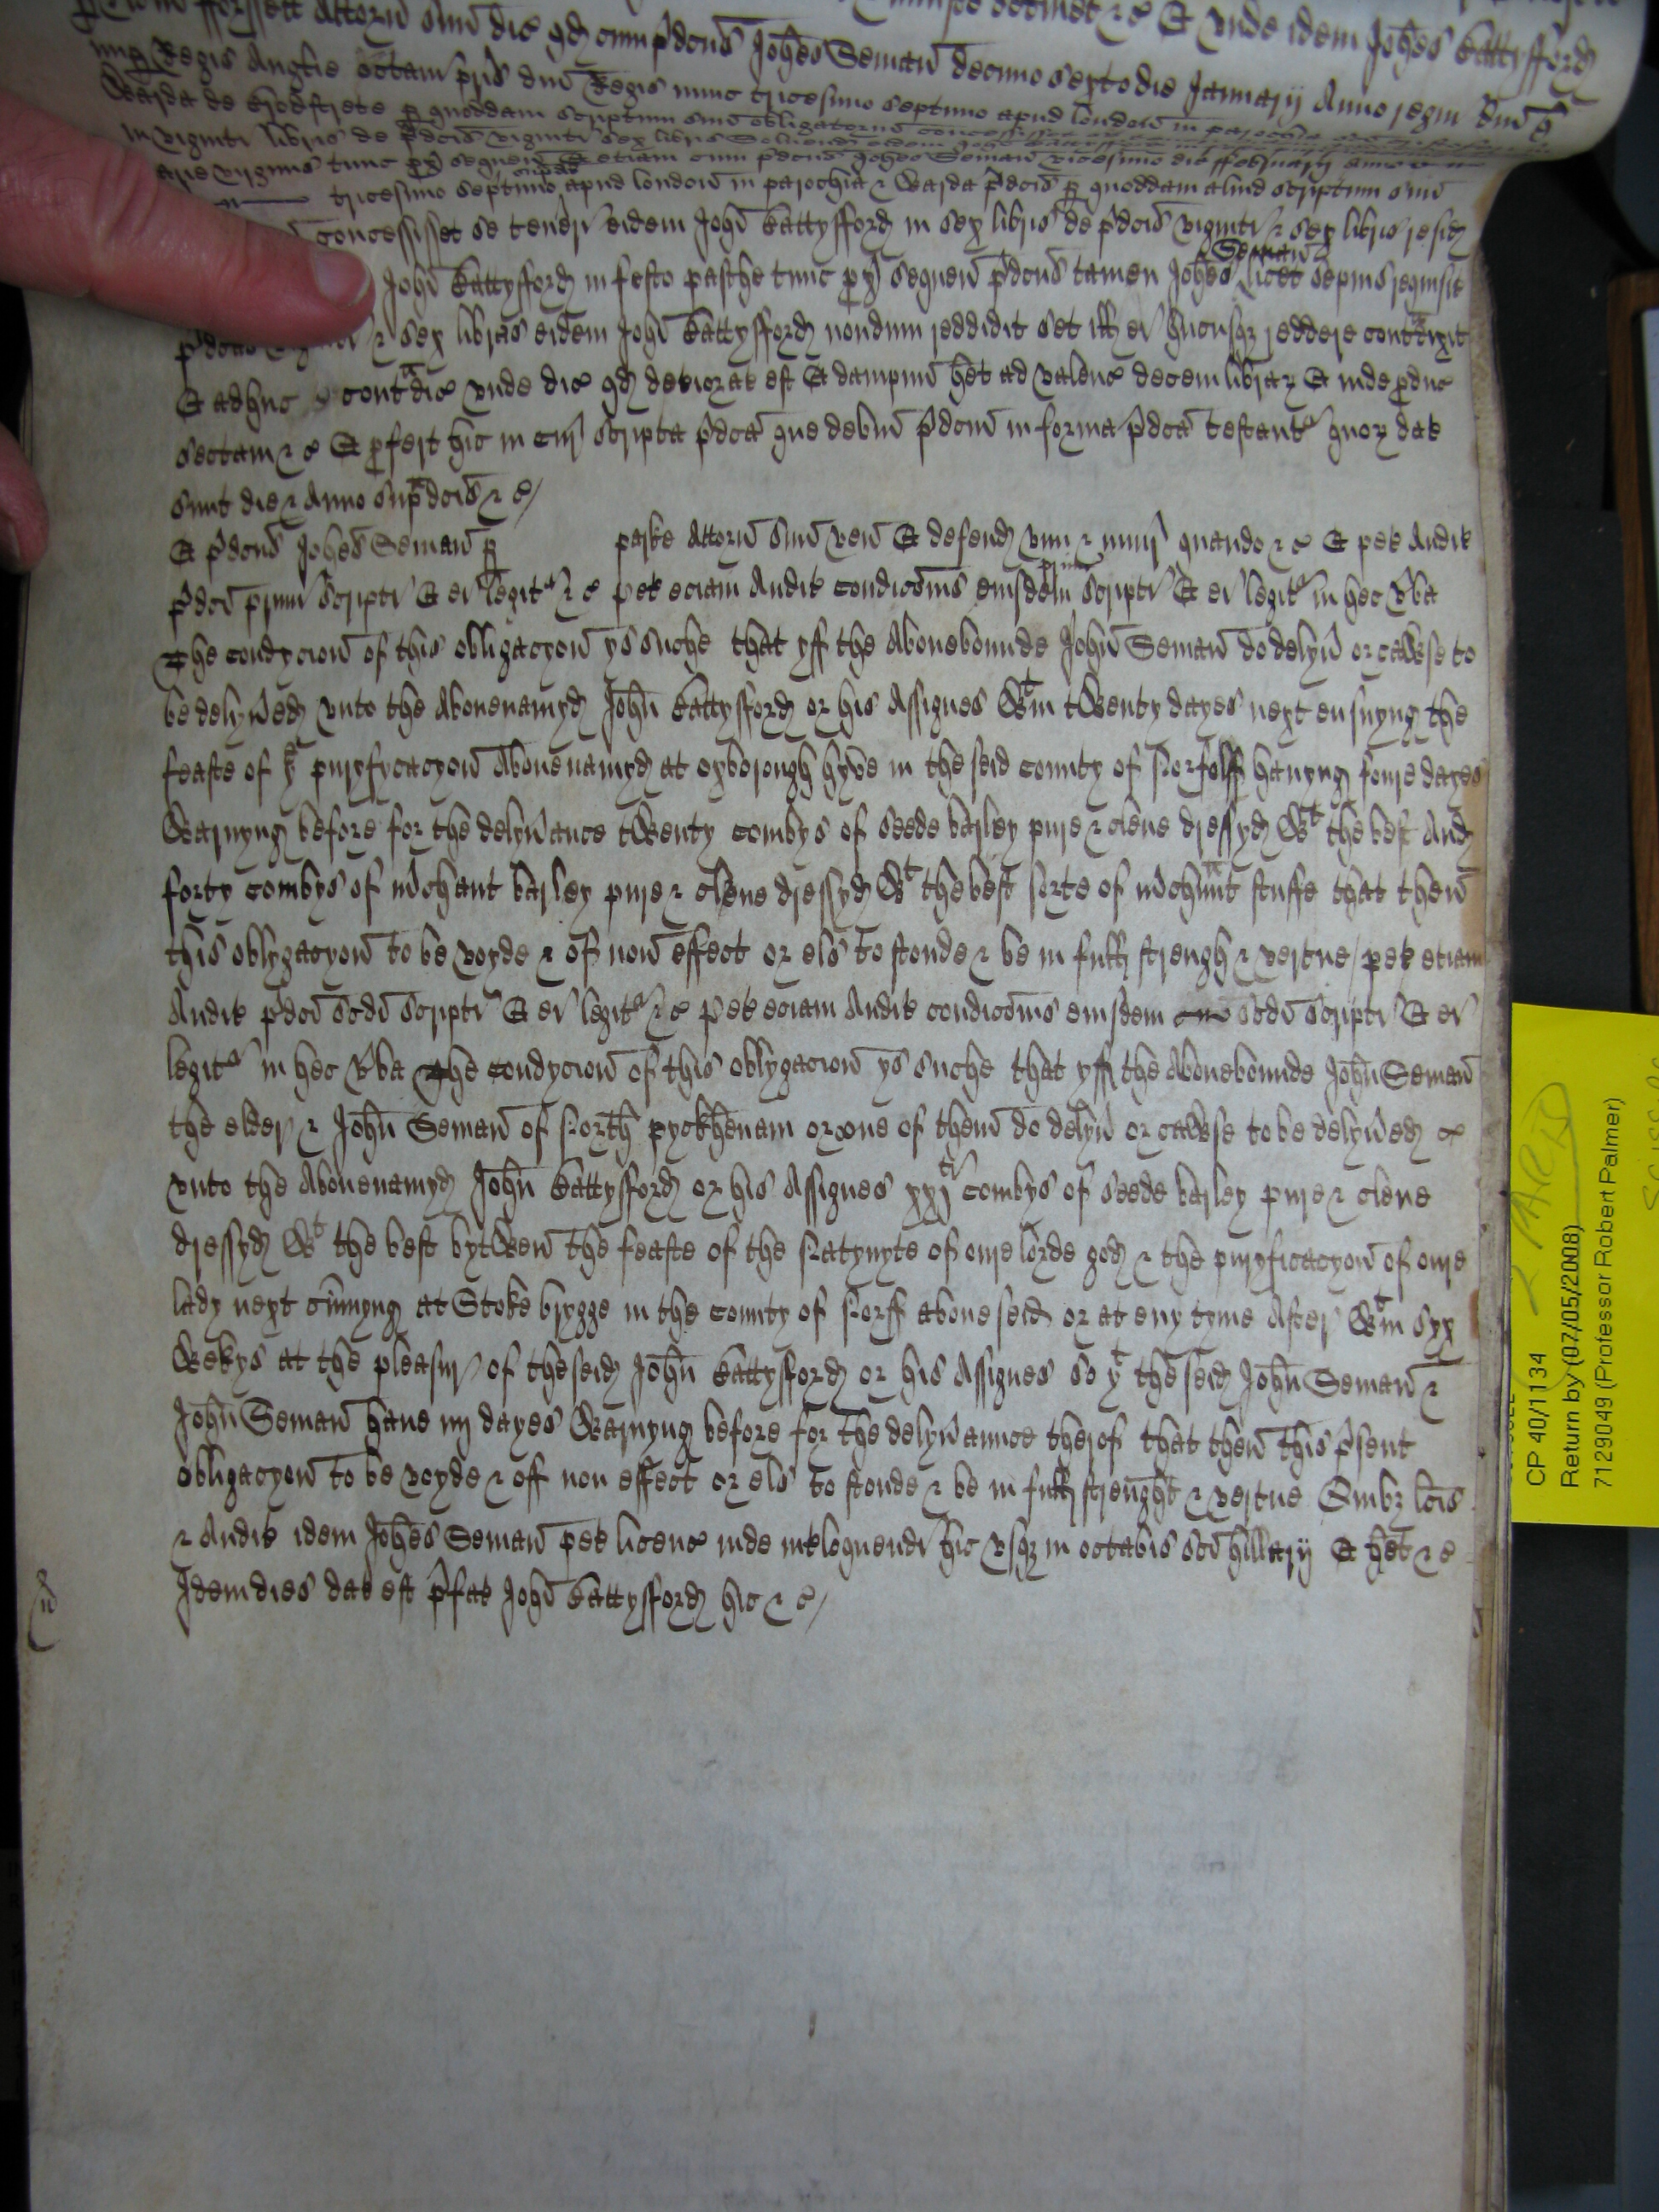 Attorn suu dic qd cum pdcus Johes Seman decimo sexto die Januarij Anno regni dni
Regis Anglie octavi pris dni Regis nunc tricesimo septimo apud london in parochia
Warda de p quoddam scriptum suu obligatoriu
in viginti libris de pdcis viginti sex libris
virginis tunc px sequen etiam cum pdcus Johes Seman vicesimo die ffebruarij
tricesimo septimo supdco apud london in parochia & Warda pdcis p quoddam aliud scriptum suu
concessisset se teneri eidem Johi Battyfford in sex libris de pdcis viginti & sex libris resid
Johi Battyfford in festo pasche tunc px sequen pdcus tamen Johes Seman licet sepius requisit
& sex libras eidem Johi Battyfford nondum reddidit set ill ei hucusqz reddere contradixit
Et adhuc contradic unde dic qd deteriorat est Et dampnu het ad valenc decem librar Et inde pduc
sectam &c Et pfert hic in cur scripta pdca que debitu pdcum in forma pdca testant quor dat
sunt die & Anno supradcis &c
Et pdcus Johes Seman p parke Attorn suu ven Et defend vim & iniur quando &c Et pet Audit
pdci primi scripti Et ei legit &c pet eciam Audit condicois eiusdem primi scripti Et ei legit in hec vba
The condycion of this obligacyon ys suche that yff the Abovebounde John Seman do delyv or cawse to
be delyved unto the Abovenamyd John Battyfford or his Assignes Wtin tWenty dayes next ensuyng the
feaste of ye puryfycacyon Abovenamyd at oxborough hythe in the seid county of Norfolk havyng foure dayes
Warnyng before for the delyvance tWenty combys of seede barley pure & clene dressyd Wt the best And
forty combys of mchant barley pure & clene dressyd Wt the best sorte of mchant stuffe that then
this oblygacyon to be voyde & of non effect or els to stonde & be in full strengh & vertue / pet etiam
Audit pdci scdi scripti Et ei legit &c pet eciam Audit condicois eiusdem scdi scripti Et ei
legit in hec vba The condycion of this oblygacion ys suche that yff the Abovebounde John Seman
the elder & John Seman of North pyckhenam or one of them do delyv or cawse to be delyved
unto the Abovenamyd John Battyfford or his Assignes xxj combys of seede barley pure & clene
dressyd Wt the best bytWen the feaste of the Natyvyte of oure lorde god & the puryficacyon of oure
lady next cumyng at Stoke brygge in the county of Norff above seid or at eny tyme After Wtin syx
Wekys at the pleasur of the seid John Battyfford or his Assignes so yt the seid John Seman &
John Seman have iiij dayes Warnyng before for the delyvaunce therof that then this psent
obligacyon to be voyde & off non effect or els to stonde & be in full strenght & vertue Quibz lcis
& Audit idem Johes Seman pet licenc inde intloquendi hic usqz in octabis sci hillarij Et het &c
Idem dies dat est pfat Johi Battyfford hic &c
CP 40/1134
Return by (07/05/2008)
7129049 (Professor Robert Palmer)